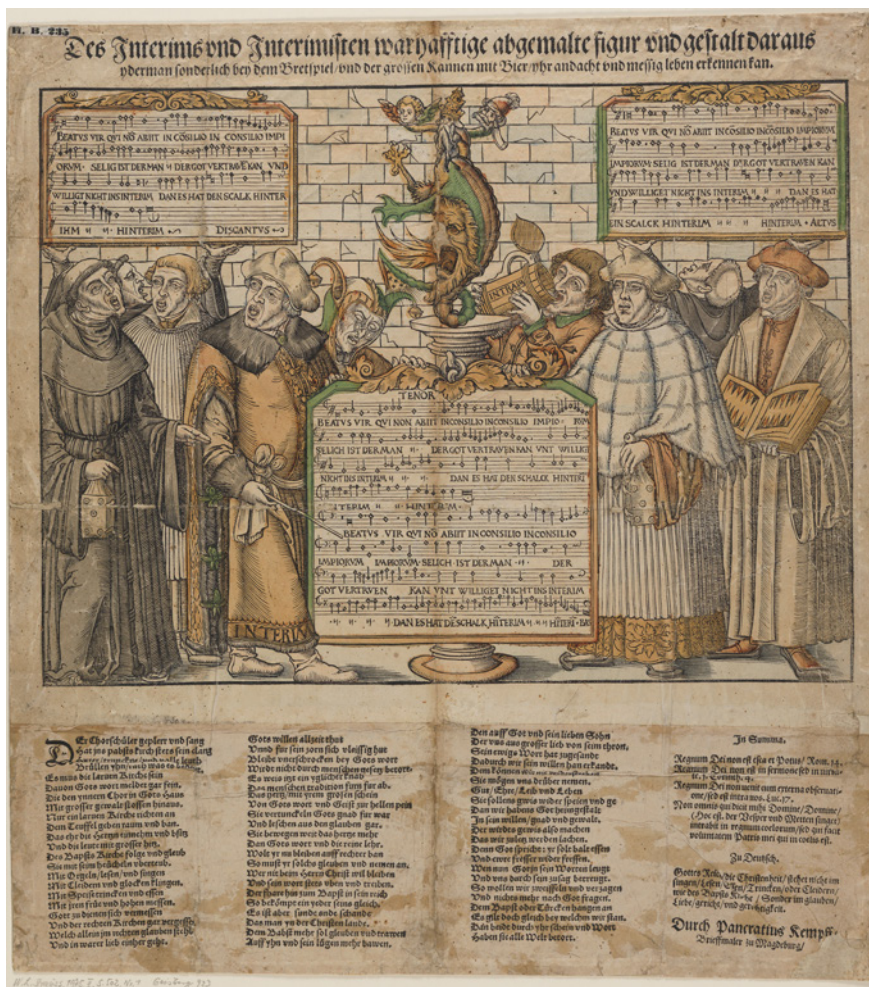 H. B. 235
Des Interims vnd Interimisten warhafftige abgemalte figur vnd gestalt daraus
yderman sonderlich bey dem Bretspiel/vnd der grossen Kannen mit Bier/yhr andacht vnd messig leben erkennen kan.
BEATVS VIR QVI NO ABIIT IN COSILIO IN CONSILIO IMPI
ORVM · SELIG IST DER MAN DER GOT VERTRAVE KAN VND
WILLIGT NICHT INS INTERIM DAN ES HAT DEN SCALK HINTER
IHM HINTERIM DISCANTVS
BEATVS VIR QVI NO ABIIT IN COSILIO IN COSILIO IMPIORVM
IMPIORVM SELIG IST DER MAN DER GOT VERTRAVEN KAN
VND WILLIGET NICHT INS INTERIM DAN ES HAT
EIN SCALCK HINTERIM HINTERIM · ALTVS
INTERIM
TENOR
BEATVS VIR QVI NON ABIIT IN CONSILIO IN CONSILIO IMPIO · RVM
SELICH IST DER MAN DER GOT VERTRAVEN KAN VNT WILLIGT
NICHT INS INTERIM DAN ES HAT DEN SCHALCK HINTERI
ITERIM HINTERIM
BEATVS VIR QVI NO ABIIT IN CONSILIO IN CONSILIO
IMPIORVM IMPIORVM · SELICH IST DER MAN DER
GOT VERTRVEN KAN VNT WILLIGET NICHT INS INTERIM
DAN ES HAT DE SCHALK HITERIM HITERI · BAS
INTERIM
DEr Chorschüler geplerr vnd sang
Hat jns pabsts kirch sters sein clang
Es mus die laruen Kirche sein
Dauon Gots wort meldet gar fein.
Die den ynnern Chor in Gots Haus
Mit grosser gewalt stossen hinaus.
Nur ein laruen Kirche richten an
Dem Teuffel geben raum vnd ban.
Das ehr die Hertzen einnehm vnd besitz
Vnd die leute mit grosser hitz.
Des Bapsts Kirche folge vnd gleub
Die mit seim heucheln vberteub.
Mit Orgeln/lesen/vnd singen
Mit Cleidern vnd glocken klingen.
Mit Speisen trincken vnd essen
Mit jren früe vnd hohen messen.
Gott zu dienen sich vermessen
Vnd der rechten Kirchen gar vergessen.
Welch allein im rechten glauben stehd
Vnd in warer lieb einher gehe.
Gots willen allzeit thut
Vnnd für sein zorn sich vleissig hut
Bleibt vnerschrocken bey Gots wort
Wirdt nicht durch menschen gesetz betort.
Es weis itzt ein yglicher knab
Das menschen tradition
Von Gots wort vnd Geist zur hellen pein
Sie vertunckeln Gots gnad für war
Vnd leschen aus den glauben gar.
Sie bewegen weit das hertze mehr
Dan Gots wort vnd die reine lehr.
Wolt yr nu bleiben auff rechter ban
So must yr solchs gleuben vnd nemen an.
Wer mit beim Herrn Christ wil bleiben
Vnd sein wort stets vben vnd treiben.
Der fluhr hin zum Bapst in sein reich
So bekömpt ein yeder seins gleich.
Es ist aber sunde ande schande
Das man yn der Christen lande.
Dem Babst mehr sol gleuben vnd trawen
Auff yhn vnd sein lügen mehr bawen.
Den auff Got vnd sein lieben Sohn
Der vns aus grosser lieb von seim thron.
Sein ewigs Wort hat zugesandt
Dadurch wir sein willen han erkandt.
Sie mögen vns brüder nemen.
Gut/Ehre/Leib vnd Leben
Sie sollens gwis wider speien vnd geben
Dan wir habens Got heimgestalt
In sein willen/gnad vnd gewalt.
Der wirdes gewis also machen
Das wir zuletzt werden lachen.
Denn Got spricht: yr solt balt essen
Vnd ewre fresser wider fressen.
Wen nun Gott in sein Worten leugt
Vnd vns durch sein zusag betreugt.
So wollen wir zweiffeln vnd verzagen
Vnd nichts mehr nach Got fragen.
Dem Bapst oder Türcken hangen an
Es gilt doch gleich bey welchem wir stan.
Dan beide durch yhr schein vnd Wort
Haben sie alle Welt betort.
In Summa.
Regnum Dei non est esca et Potus/Rom. 14.
Regnum Dei non est in sermone sed in
Regnum Dei non uenit cum externa obseruatione/
sed est intra uos. Luc. 17.
Non omnis qui dicit mihi Domine/Domine/
(Hoc est, der Vesper vnd Metten singet)
intrabit in regnum coelorum/sed qui facit
voluntatem Patris mei qui in coelis est.
Zu Deutsch.
Gottes Reich/die Christenheit/stehet nicht im
singen/Lesen/Essen/Trincken/oder Cleidern/
wie des Bapsts Kirche/Sonder im glauben/
Liebe/gericht/vnd gerechtigkeit.
Durch Pancratius Kempff-
Brieffmaler zu Magdeburg/